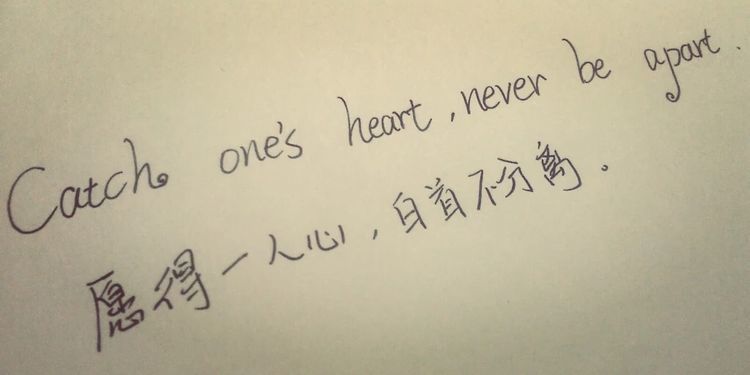 Catch one's heart, never be apart.
愿得一人心，白首不分离。